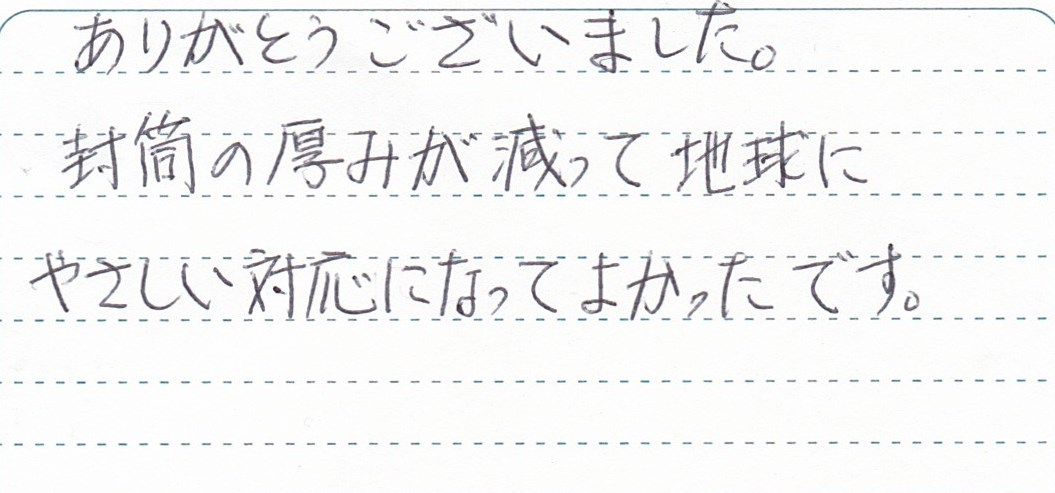 ありがとうございました。
封筒の厚みが減って地球に
やさしい対応になってよかったです。